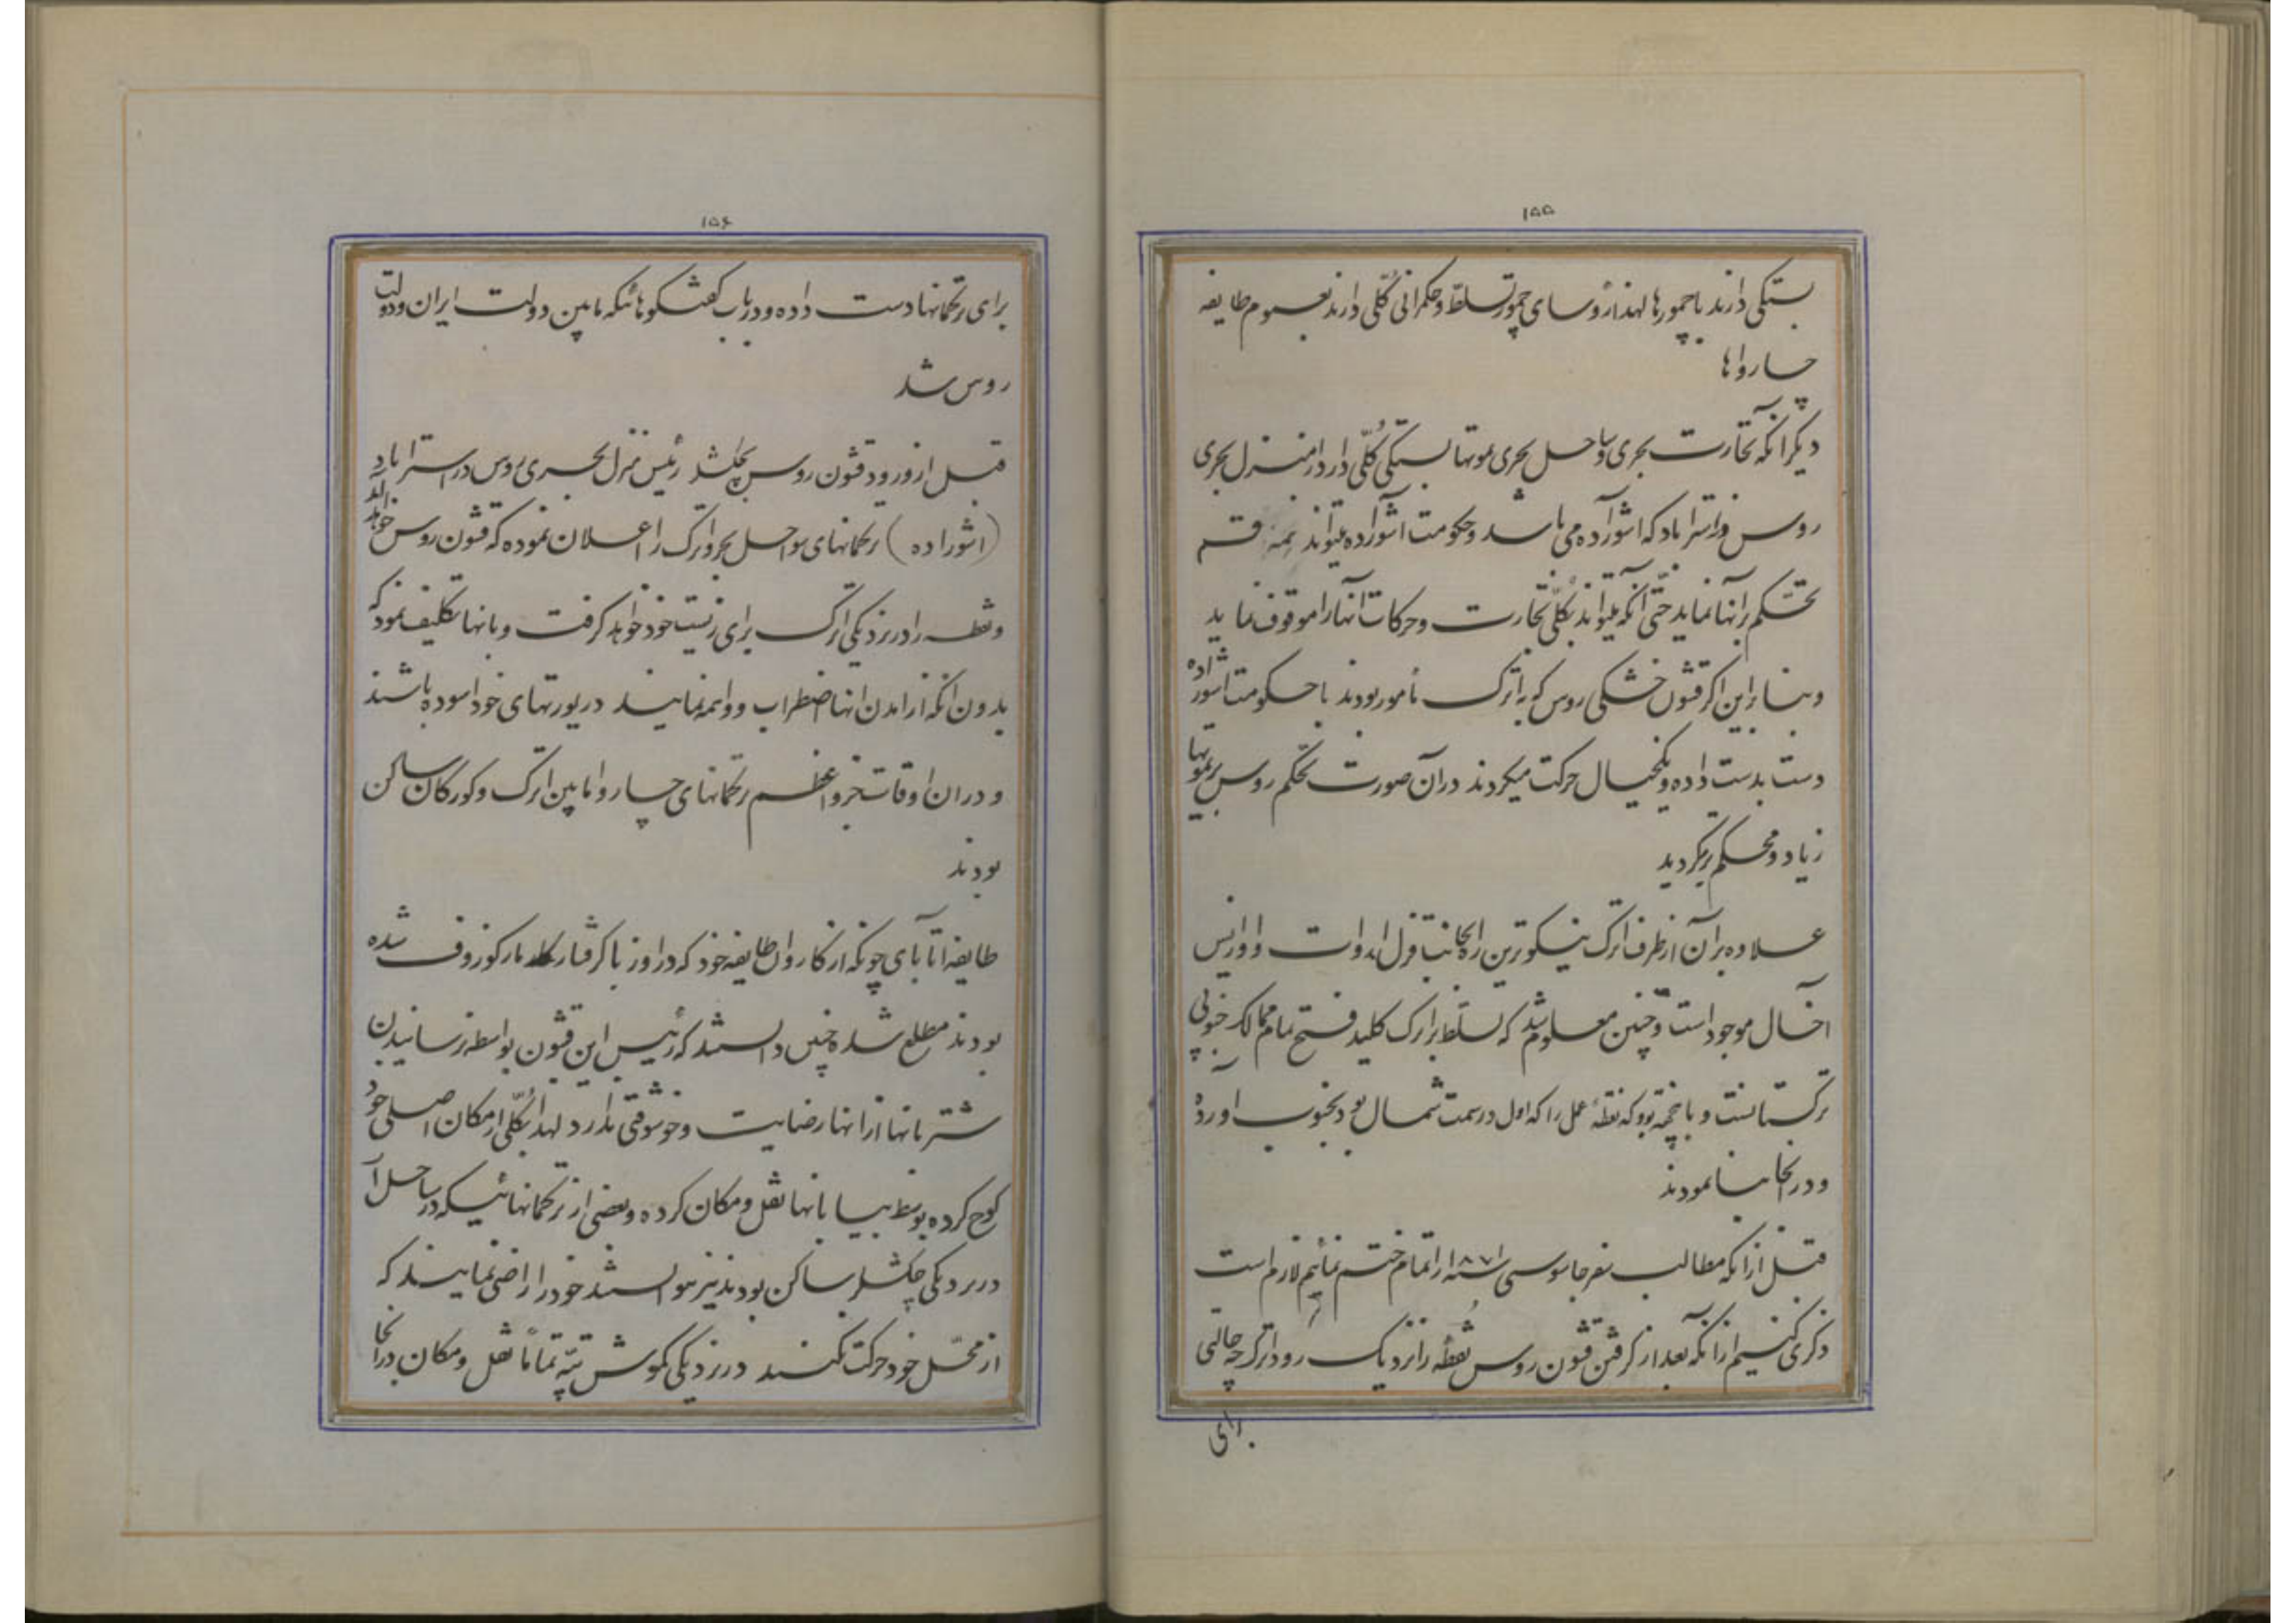 ۱۵۵
بستگی دارند با چمورها لهذا رؤسای چمور تسلط و حکمرانی کُلّی دارند بعموم طایفه
چاروا ها
دیگر آنکه تجارت بحری و ساحل بحری یموتها بستگی کُلّی دارد از منزل بحری
روس در استراباد که اشوراده می باشد و حکومت اشوراده میتواند همه قسم
تحکّم بر آنها نماید حتّی آنکه میتواند بکُلّی تجارت و حرکات آنها را موقوف نماید
و بنا براین اگر قشون خشکی روس که به اترک مأمور بودند با حکومت اشوراده
دست بدست داده و یکخیال حرکت میکردند در آن صورت تحکّم روس بر یموتها
زیاد و محکم تر میگردید
علاوه بر آن از طرف اترک نیکوترین راه بجانب قزل اروات و اورایس
آخال موجود است و چنین معلوم شد که تسلّط بر اترک کلید فتح تمام ممالک جنوبی
ترکستانست و باینجهة بود که نقطۀ عمل را که اول در سمت شمال بود بجنوب آورده
و در آنجا بنا نمودند
قبل از آنکه مطالب سفر جاسوسی سنه ۱۸۷۱ را تمام ختم نمائیم لازم است
ذکری کنیم از آنکه بعد از گرفتن قشون روس نُقطۀ را نزدیک رود اترک چه حالتی
برای
۱۵۶
برای ترکمانها دست داده و در باب گفتگوهائیکه مابین دولت ایران و دولت
روس شد
قبل از ورود قشون روس بچکشلر رئیس منزل بحری روس در استراباد
(اشوراده) ترکمانهای سواحل بحر و اترک را اعلان نموده که قشون روس خواهد آمد
و نقطه را در نزدیکی اترک برای زیست خود خواهد گرفت و بانها تکلیف نمود که
بدون آنکه از امدن انها اضطراب و واهمه نمایند در یورتهای خود اسوده باشند
و در ان اوقات جزو اعظم ترکمانهای چاروا مابین اترک و کورکان ساکن
بودند
طایفه اتابای چونکه از کاروان طایفه خود که در اوزبا کرفتار مارکوزوف شده
بودند مطلع شده چنین دانستند که رئیس این قشون بواسطه نرسانیدن
شتر بانها از انها رضایت و خوشوقتی ندارد لهذا بکُلّی از مکان اصلی خود
کوچ کرده بوسط بیابانها نقل و مکان کرده و بعضی از ترکمانهائیکه در ساحل آ
در نزدیکی چکشلر ساکن بودند نیز نتوانستند خود را راضی نمایند که
از محّل خود حرکت نکنند در نزدیکی کموش تپّه تماماً نقل و مکان در آنجا